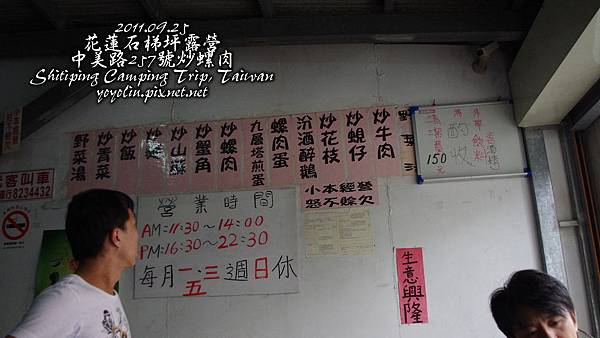 2011.09.25
花蓮石梯坪露營
中美路257號炒螺肉
Shitiping Camping Trip, Taiwan
yoyolin.pixnet.net
炒牛肉
炒蜆仔
炒花枝
汾酒醉鵝
螺肉蛋
九層塔煎蛋
炒螺肉
炒蟹角
炒山蘇
炒飯
炒青菜
野菜湯
小本經營
恕不賒欠
酌收
150元
客叫車
8234432
營業時間
AM=11:30～14:00
PM=16:30～22:30
每月一、三週日休
五
生意興隆